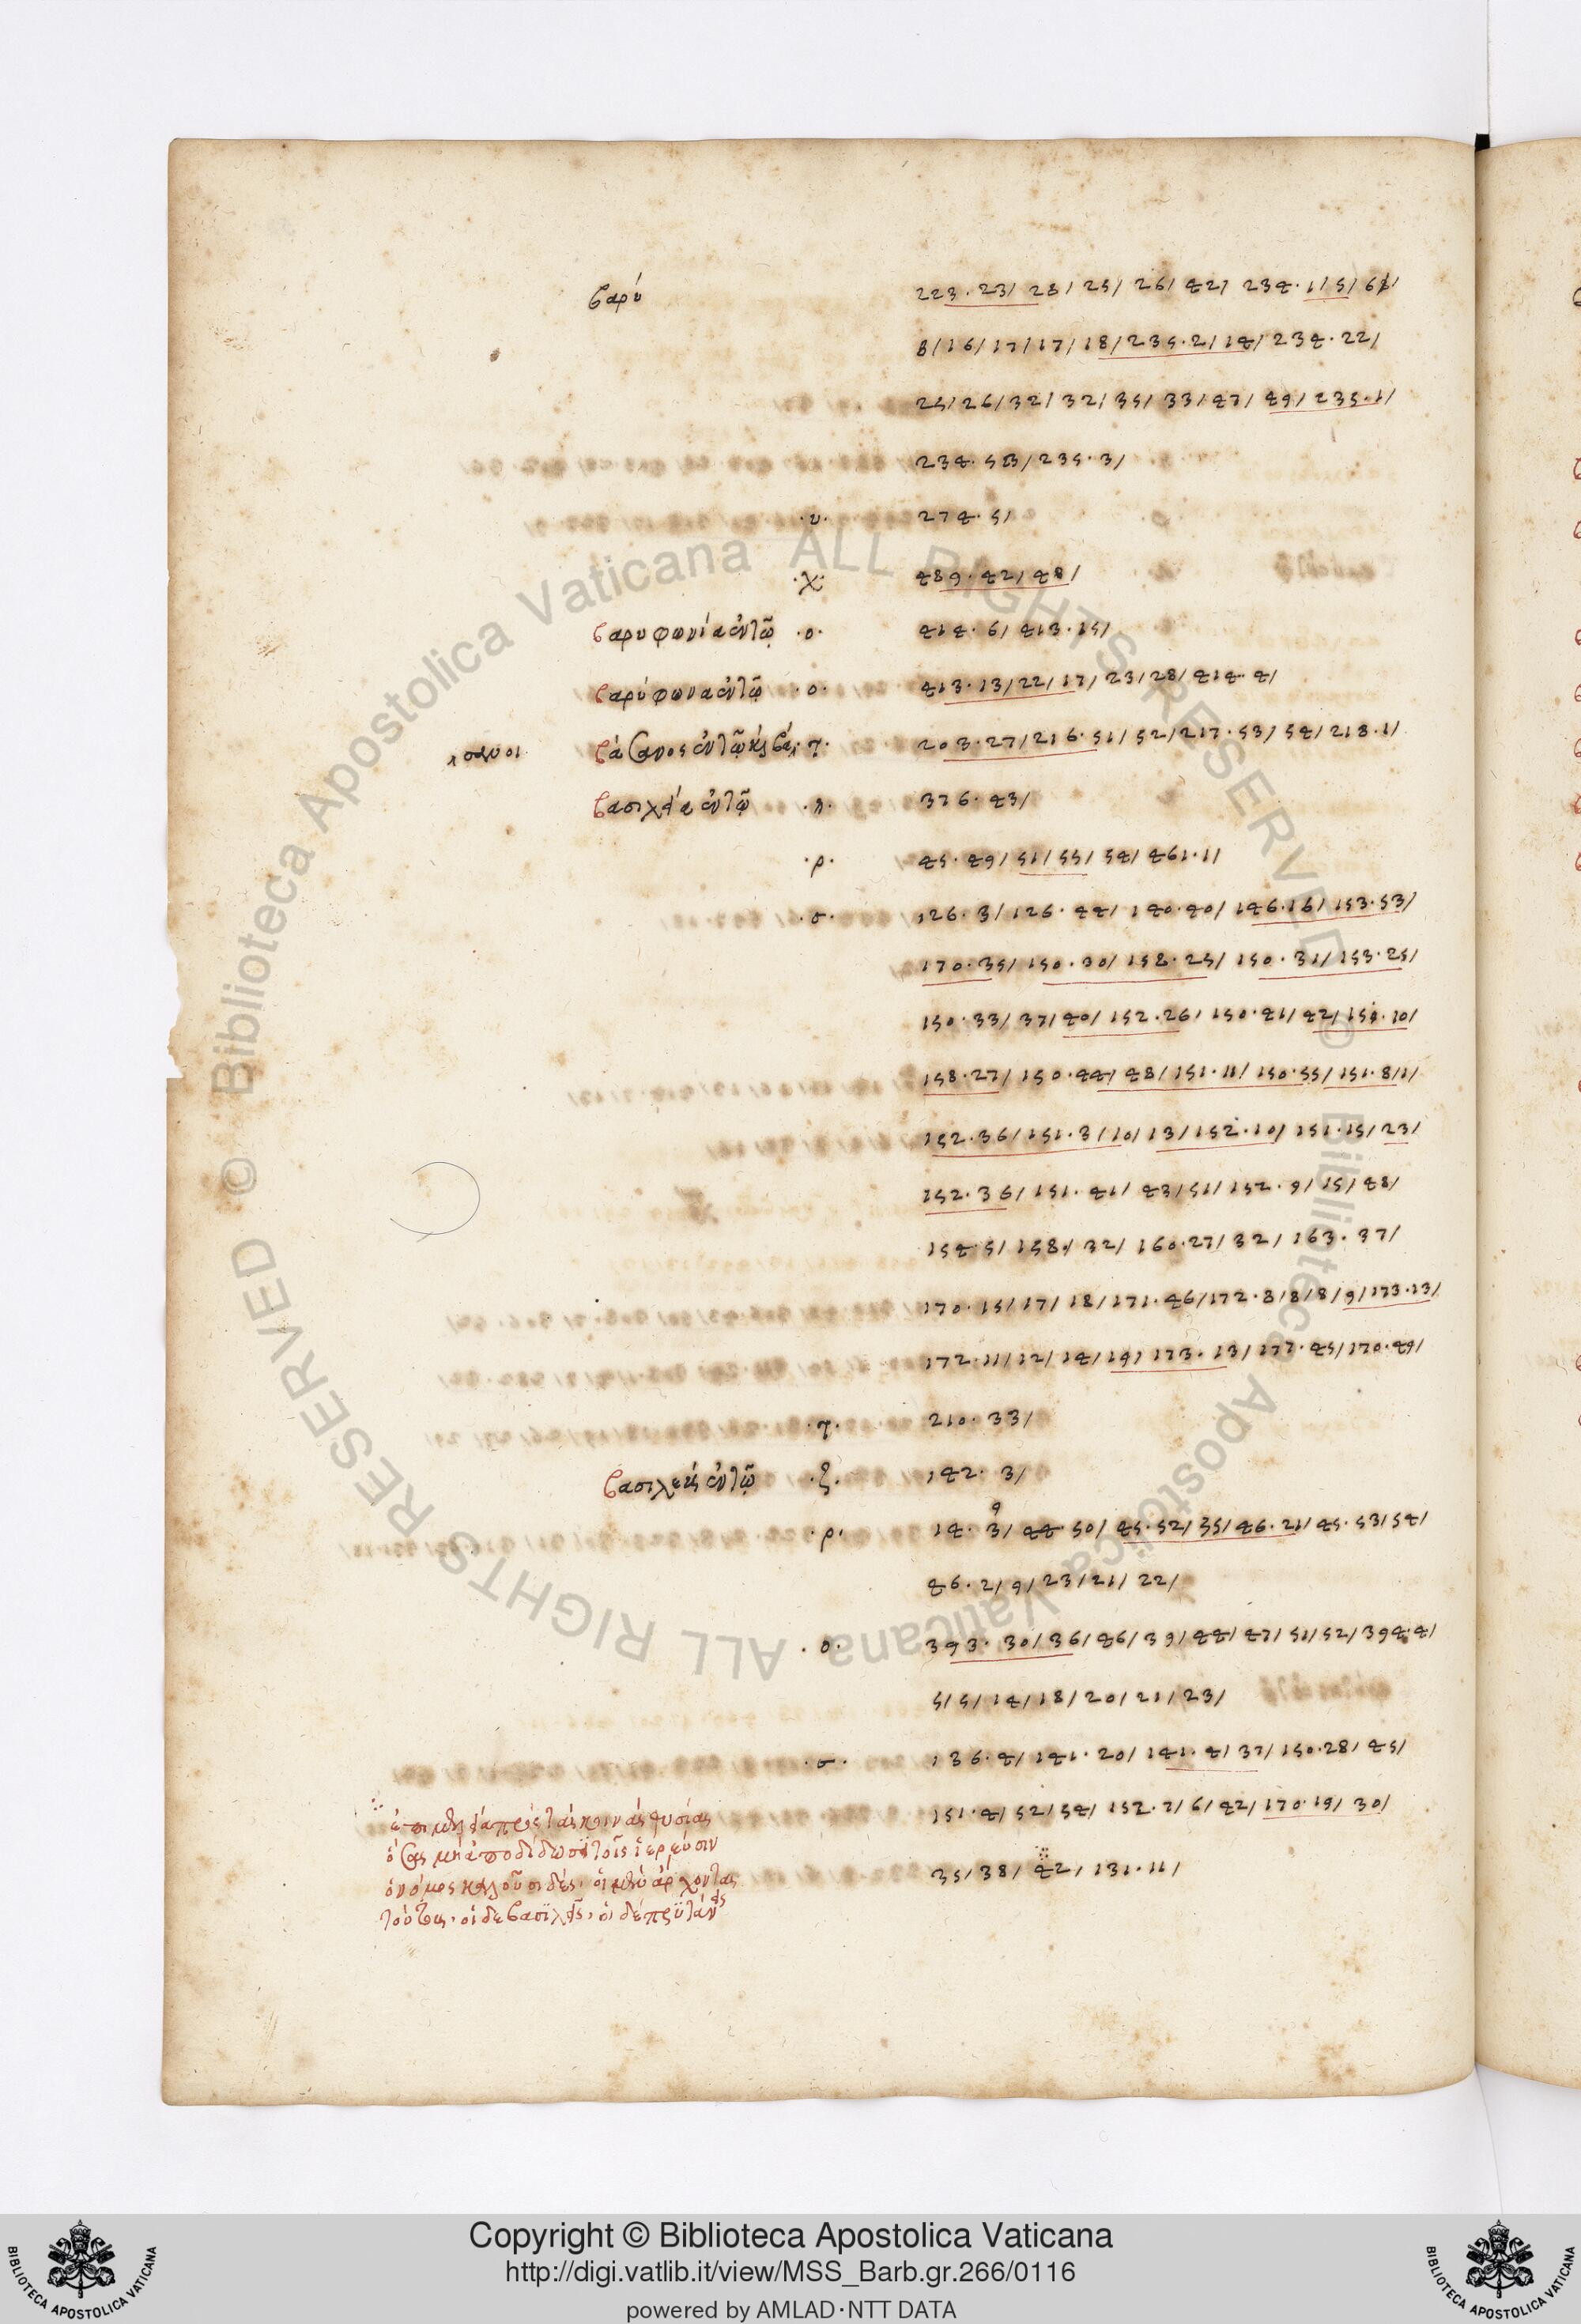 βαρύ 223 · 23/ 28/ 25/ 26/ 42/ 234 · 1/ 5/ 6/
8/ 16/ 17/ 17/ 18/ 235 · 2/ 14/ 234 · 22/
25/ 26/ 32/ 32/ 35/ 33/ 47/ 49/ 235 · 1/
234 · 53/ 235 · 3/
· υ · 274 · 5/
· χ · 489 · 42/ 48/
βαρυφωνία ἐν τῷ · ο · 414 · 6/ 413 · 15/
βαρύφωνα ἐν τῷ · ο · 413 · 13/ 22/ 17/ 23/ 28/ 414 · 4/
βάσανος ἐν τῷ · τ · 203 · 27/ 216 · 51/ 52/ 217 · 53/ 54/ 218 · 1/
βασιλεία ἐν τῷ 376 · 43/
· ρ · 45 · 49/ 51/ 55/ 54/ 461 · 1/
· σ · 126 · 3/ 126 · 44/ 140 · 40/ 146 · 16/ 153 · 53/
170 · 35/ 150 · 30/ 158 · 25/ 150 · 31/ 153 · 25/
150 · 33/ 37/ 40/ 152 · 26/ 150 · 41/ 42/ 10/
158 · 27/ 150 · 44/ 48/ 151 · 11/ 150 · 55/ 151 · 8/ 1/
152 · 36/ 151 · 3/ 10/ 13/ 152 · 10/ 151 · 15/ 23/
152 · 36/ 151 · 41/ 43/ 51/ 152 · 9/ 15/ 48/
154 · 5/ 158 · / 32/ 160 · 27/ 32/ 163 · 37/
170 · 15/ 17/ 18/ 171 · 46/ 172 · 8/ 8/ 8/ 9/ 173 · 13/
172 · 11/ 12/ 14/ 19/ 173 · 13/ 177 · 45/ 170 · 49/
· τ · 210 · 33/
βασιλεὺς ἐν τῷ · ξ · 142 · 3/
· ρ · 14 · 3/ 44 · 50/ 45 · 52/ 35/ 46 · 21/ 45 · 53/ 54/
46 · 2/ 9/ 23/ 21/ 22/
· ο · 393 · 30/ 36/ 46/ 39/ 44/ 47/ 51/ 52/ 394 · 4/
5/ 5/ 14/ 18/ 20/ 21/ 23/
· σ · 136 · 4/ 141 · 20/ 141 · 4/ 37/ 150 · 28/ 45/
151 · 4/ 52/ 54/ 152 · 2/ 6/ 42/ 170 · 19/ 30/
35/ 38/ 42/ 131 · 11/
πρὸς τὰς κοινὰς θυσίας
ὅσας μὴ ἀποδίδωσι τοῖς ἱερεῦσιν
ὁ νόμος καλοῦσι δὲ, οἱ μὲν ἄρχοντας
τούτους, οἱ δὲ βασιλεῖς, οἱ δὲ πρυτάνεις
Copyright © Biblioteca Apostolica Vaticana
http://digi.vatlib.it/view/MSS_Barb.gr.266/0116
powered by AMLAD·NTT DATA